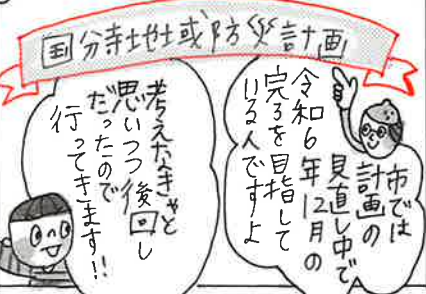 国分寺地域防災計画
市では
計画の
見直し中で
令和6年12月の
完了を目指して
いる人ですよ
考えなきゃと
思いつつ後回し
だったので
行ってきます!!